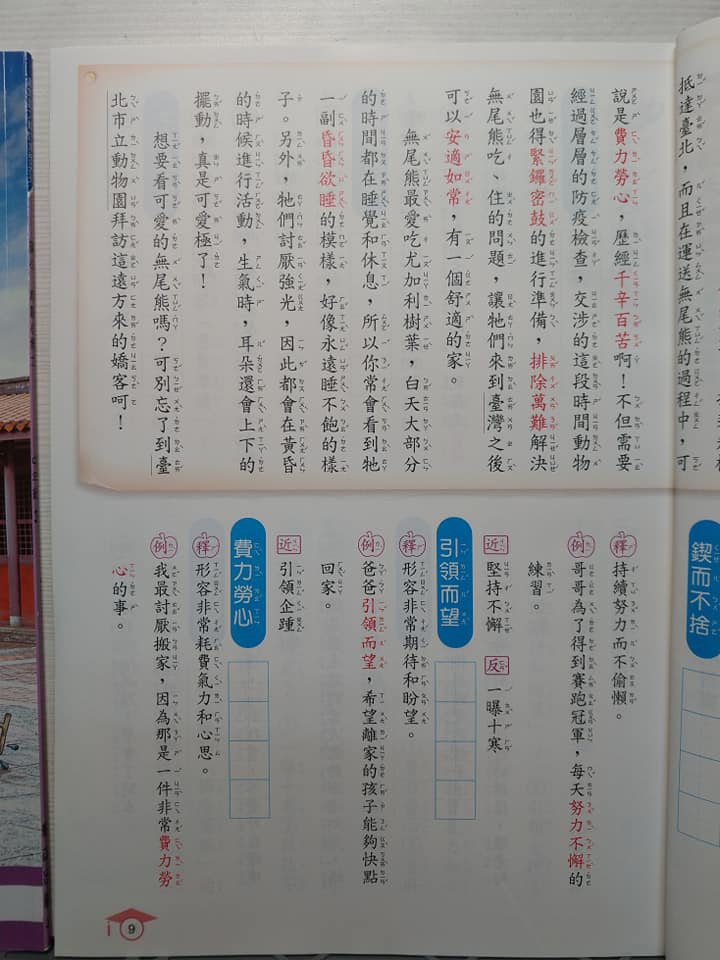 抵達臺北，而且在運送無尾熊的過程中，可
說是費力勞心，歷經千辛百苦啊！不但需要
經過層層的防疫檢查，交涉的這段時間動物
園也得緊鑼密鼓的進行準備，排除萬難解決
無尾熊吃、住的問題，讓牠們來到臺灣之後
可以安適如常，有一個舒適的家。
無尾熊最愛吃尤加利樹葉，白天大部分
的時間都在睡覺和休息，所以你常會看到牠
一副昏昏欲睡的模樣，好像永遠睡不飽的樣
子。另外，牠們討厭強光，因此都會在黃昏
的時候進行活動，生氣時，耳朵還會上下的
擺動，真是可愛極了！
想要看可愛的無尾熊嗎？可別忘了到臺
北市立動物園拜訪這遠方來的嬌客呵！
鍥而不捨
釋 持續努力而不偷懶。
例 哥哥為了得到賽跑冠軍，每天努力不懈的
練習。
近 堅持不懈 反 一曝十寒
引領而望
釋 形容非常期待和盼望。
例 爸爸引領而望，希望離家的孩子能夠快點
回家。
近 引領企踵
費力勞心
釋 形容非常耗費氣力和心思。
例 我最討厭搬家，因為那是一件非常費力勞
心的事。
9